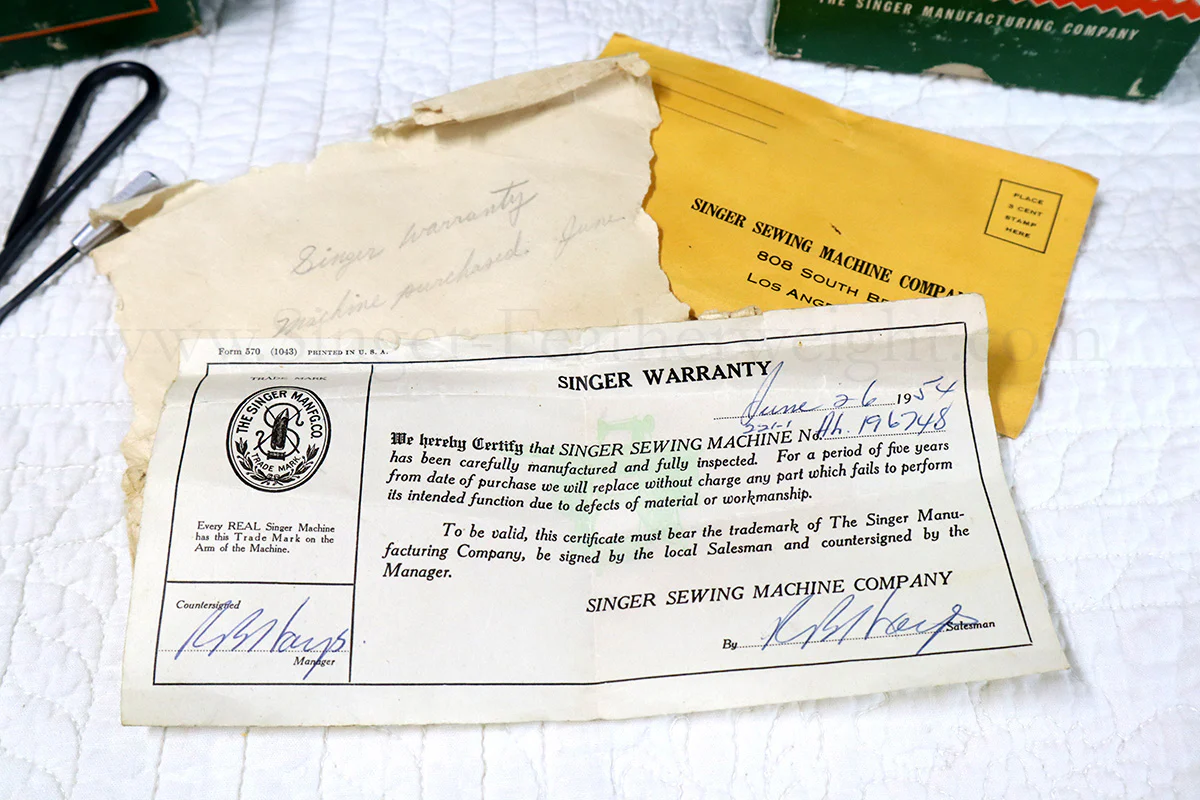 THE SINGER MANUFACTURING COMPANY
PLACE
3 CENT
STAMP
HERE
SINGER SEWING MACHINE COMPA
808 SOUTH
LOS ANG
Singer Warranty
Machine purchased. June
www.Singer-Featherweight.com
Form 570 (1043) PRINTED IN U. S. A.
TRADE MARK
THE SINGER MANFG. CO.
TRADE MARK
Every REAL Singer Machine
has this Trade Mark on the
Arm of the Machine.
Countersigned
Manager
SINGER WARRANTY
June 26 1954
221-1
We hereby Certify that SINGER SEWING MACHINE No. Ah. 196748
has been carefully manufactured and fully inspected. For a period of five years
from date of purchase we will replace without charge any part which fails to perform
its intended function due to defects of material or workmanship.
To be valid, this certificate must bear the trademark of The Singer Manu-
facturing Company, be signed by the local Salesman and countersigned by the
Manager.
SINGER SEWING MACHINE COMPANY
By Salesman